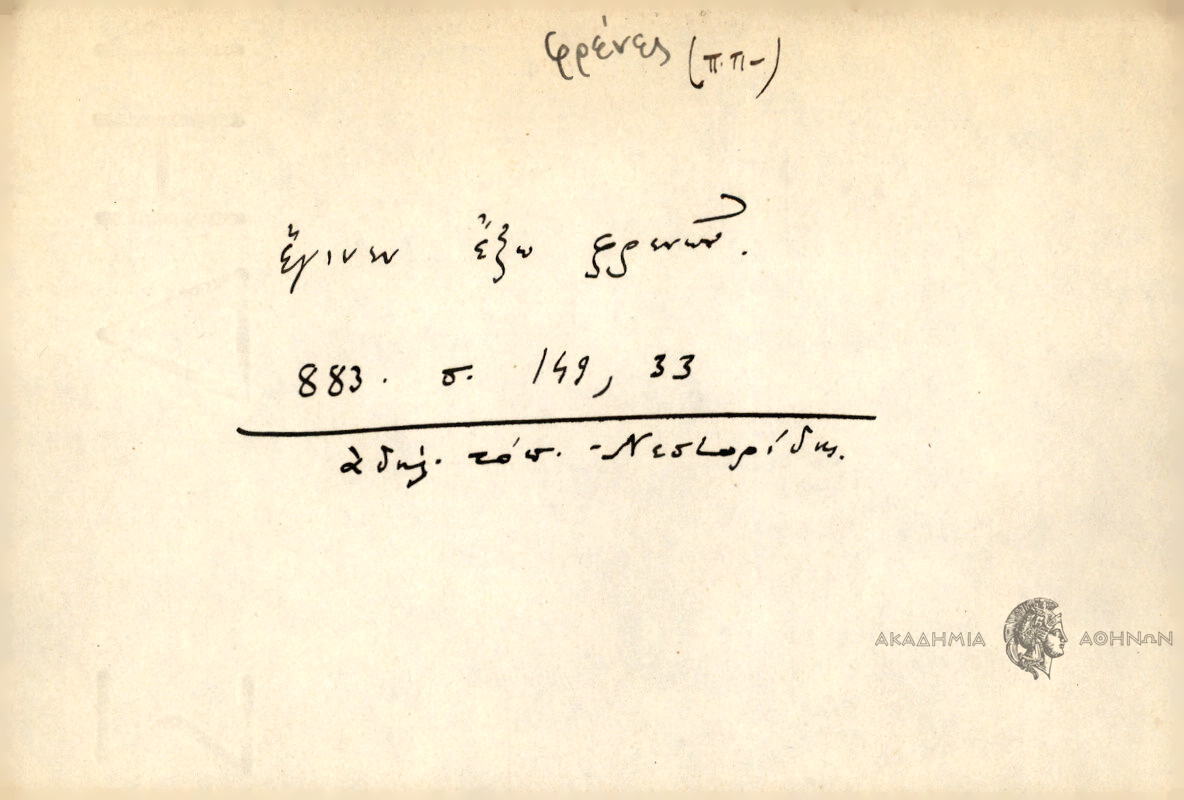 φρένες (π.π-)
ἔγινεν ἔξω φρενῶν.
883. σ. 149, 33
ἀδήλ. τόπ. - Νεστορίδης.
ΑΚΑΔΗΜΙΑ ΑΘΗΝΩΝ